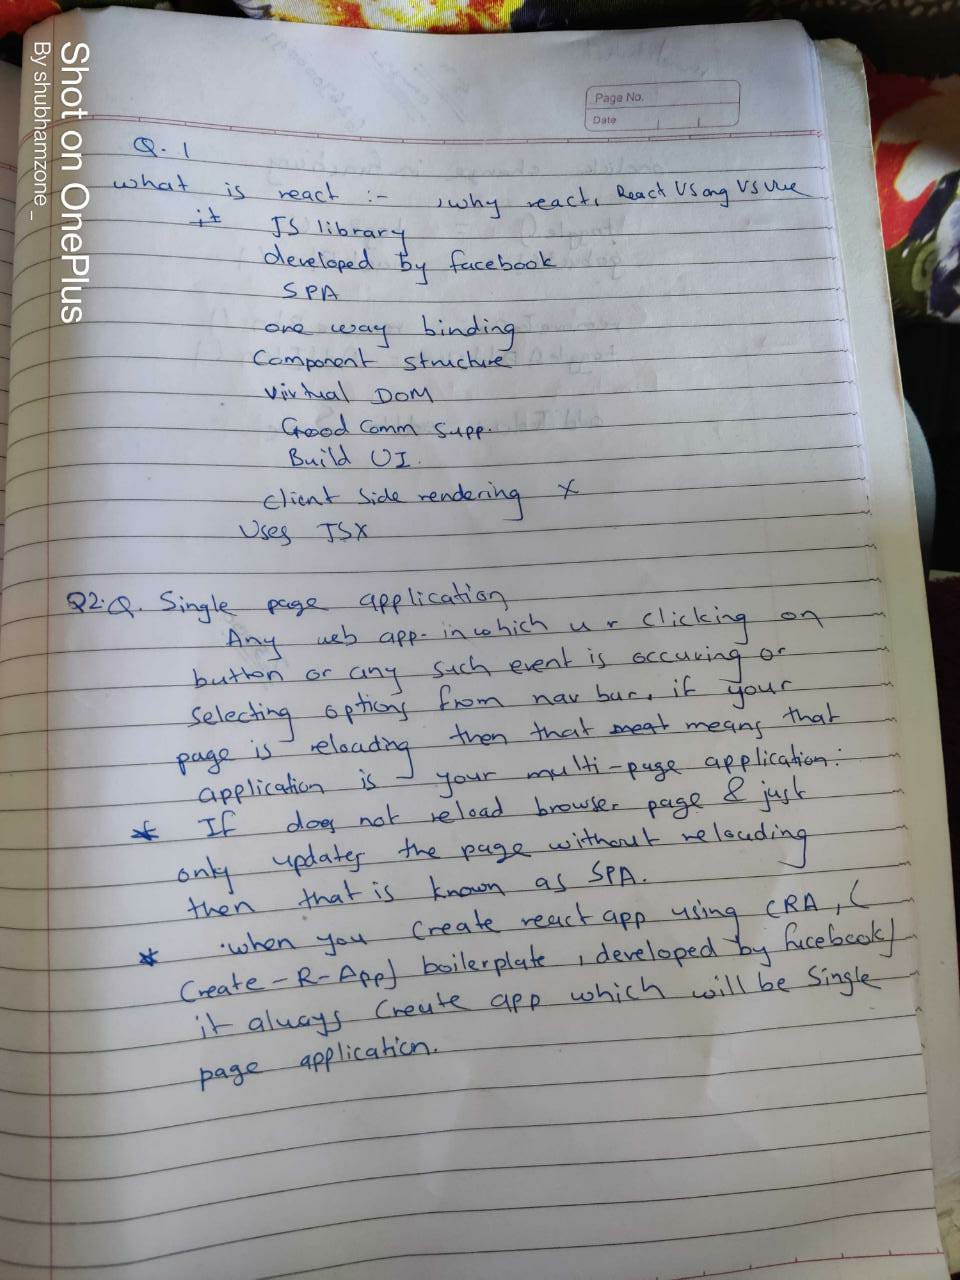 Shot on OnePlus
By shubhamzone_
Page No.
Date
Q. 1
what is react :- , why react, React VS ang VS Vue
it JS library
developed by facebook
SPA
one way binding
Component structure
virtual DOM
Good Comm Supp.
Build UI.
client side rendering X
Uses JSX
Q2. Q. Single page application
Any web app- in which u r clicking on
button or any such event is occuring or
selecting options from nav bar, if your
page is reloading then that meat means that
application is your multi-page application.
* If does not reload browser page & just
only updates the page without reloading
then that is known as SPA.
* when you create react app using CRA, (
Create-R-App) boilerplate, developed by facebook)
it always create app which will be single
page application.